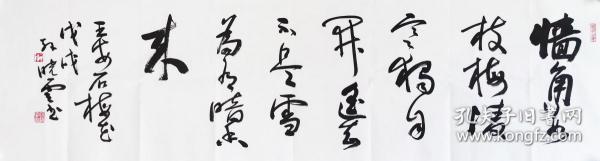 墙角数
枝梅凌
寒独自
开遥知
不是雪
为有暗香
来
王安石梅花
戊戌
孙晓云书
孔夫子旧书网
www.kongfz.com